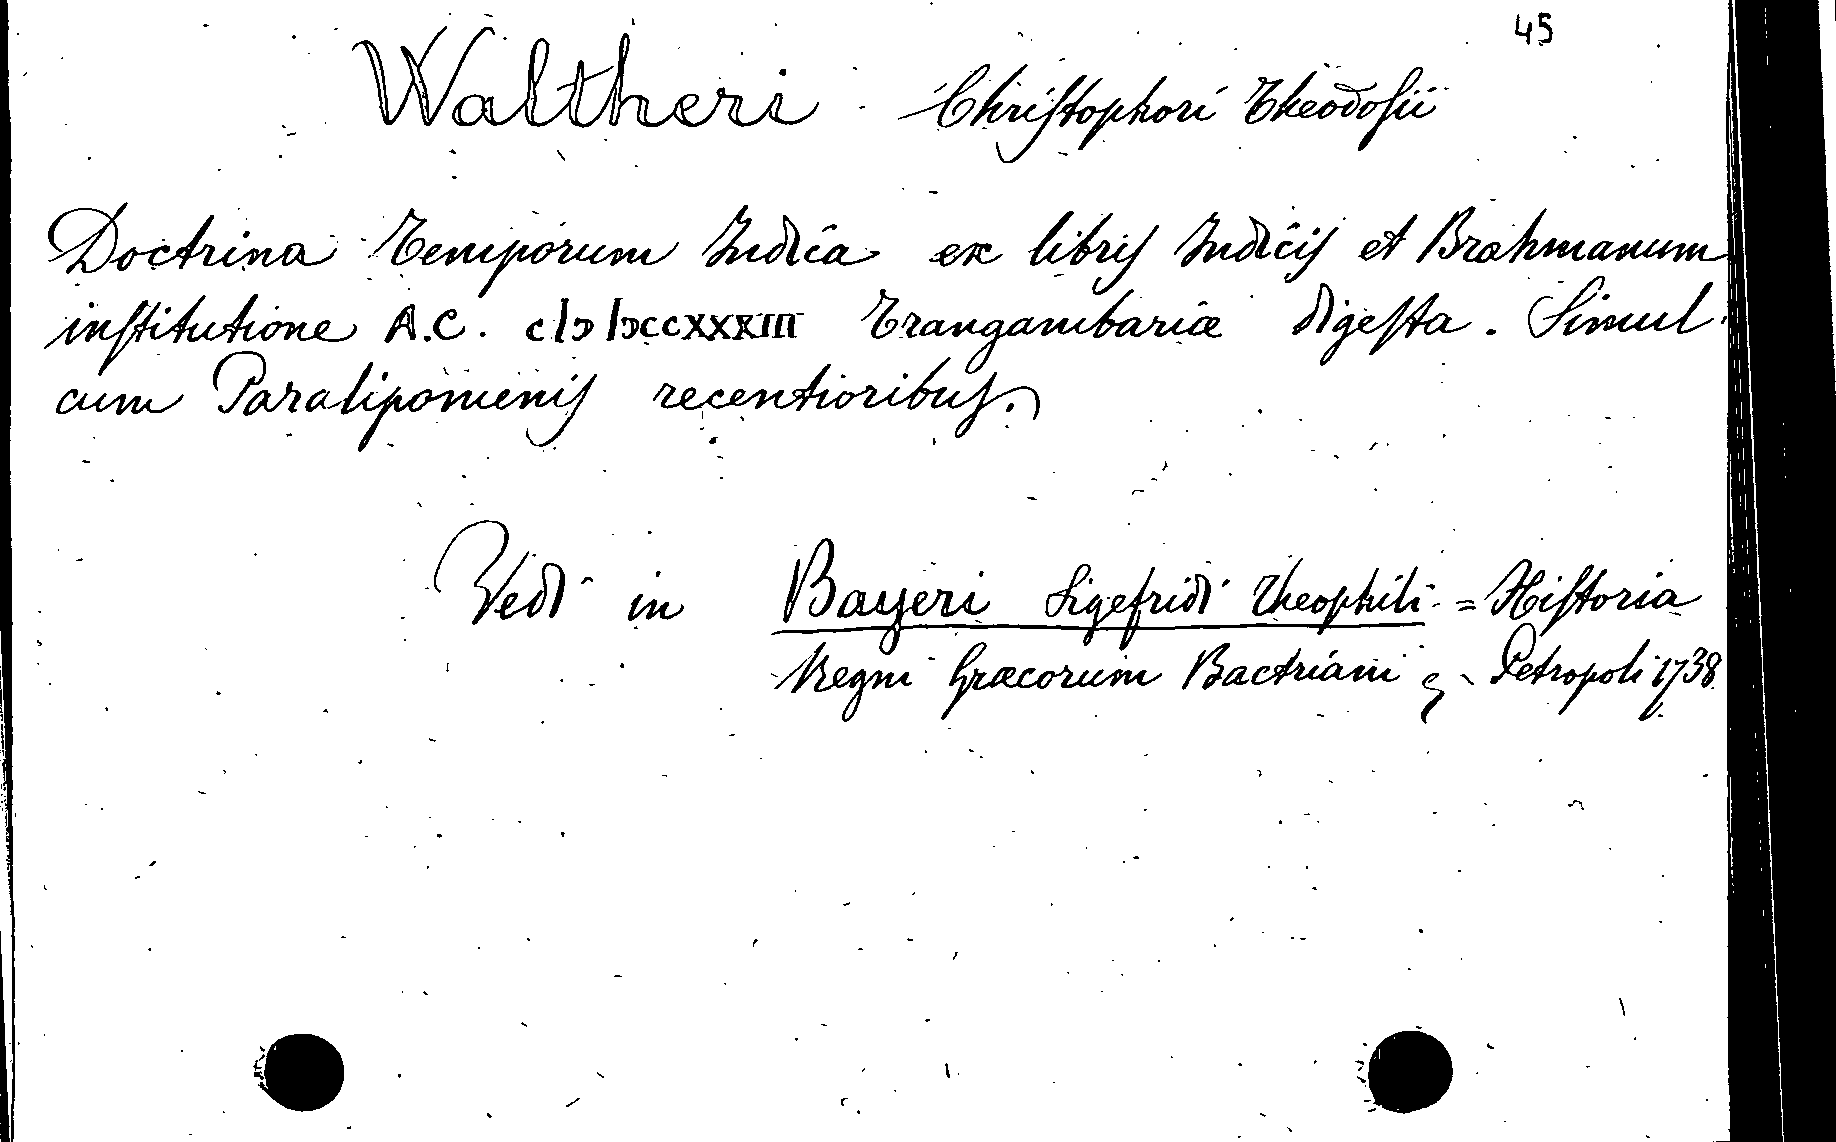 45
Waltheri Chriſtophori Theodoſii
Doctrina Temporum Indica ex libriſ Indiciſ et Brahmanum
inſtitutione A.C. cIↄIↄccxxxIII Trangambariæ digeſta. Simul
cum Paralipomeniſ recentioribuſ.
Vedi in Bayeri Sigefridi Theophili = Hiſtoria
Regni Græcorum Bactriani Petropoli 1738